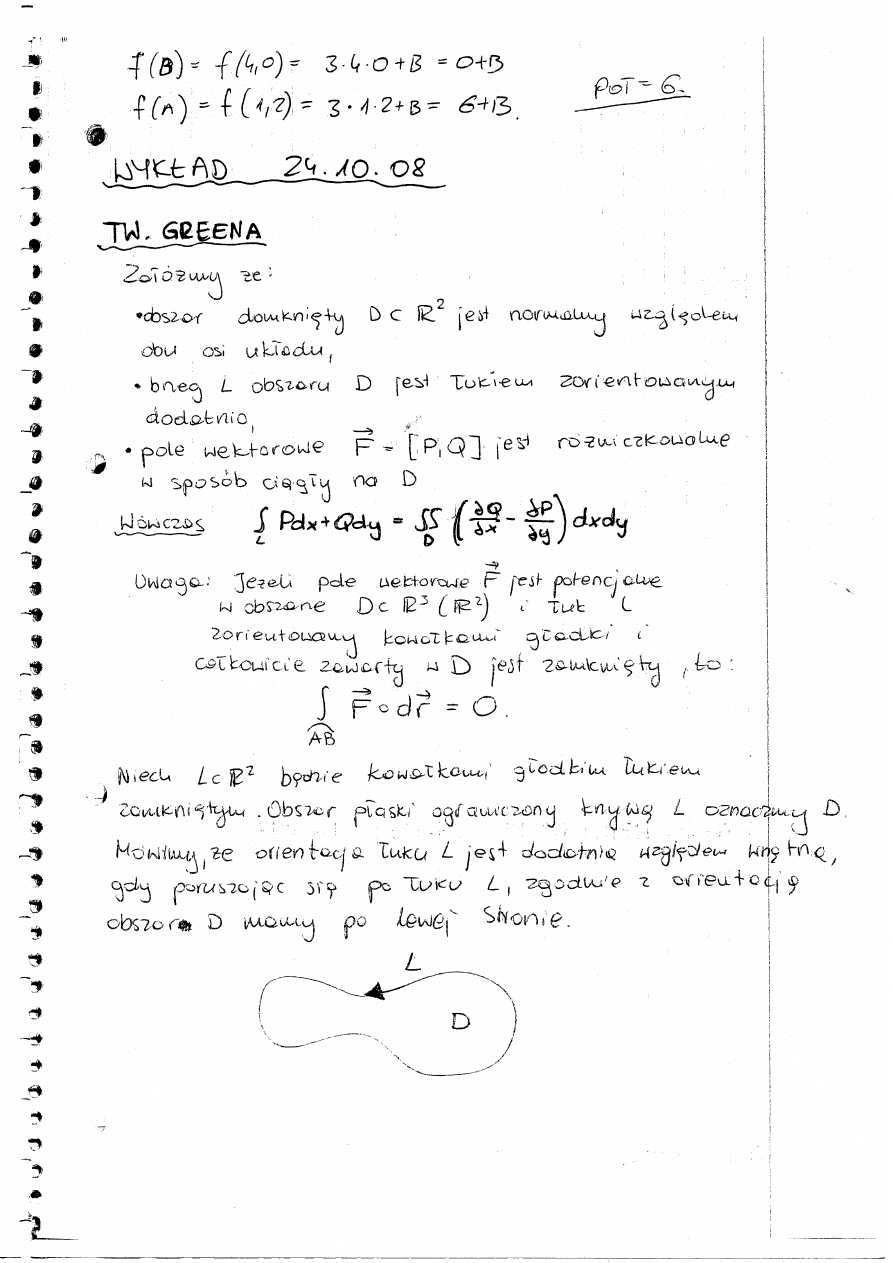 f(B) = f(4,0) = 3·4·0+B = 0+B
f(A) = f(1,2) = 3·1·2+B = 6+B.
POT = 6.
WYKŁAD 24.10.08
TW. GREENA
Załóżmy ze:
• obszar domknięty D ⊂ ℝ² jest normalny względem
obu osi układu,
• brzeg L obszaru D jest łukiem zorientowanym
dodatnio,
• pole wektorowe F⃗ = [P,Q] jest rozniczkowalne
w sposób ciągły na D
Wówczas ∫_L Pdx+Qdy = ∬_D (∂Q/∂x - ∂P/∂y) dxdy
Uwaga: Jezeli pole wektorowe F⃗ jest potencjalne
w obszarze D ⊂ ℝ³ (ℝ²) i łuk L
zorientowany kawałkami gładki i
całkowicie zawarty w D jest zamknięty, to:
∫_AB F⃗ ∘ dr⃗ = 0.
Niech L ⊂ ℝ² będzie kawałkami gładkim łukiem
zamkniętym. Obszar płaski ograniczony krzywą L oznaczmy D.
Mówimy, ze orientacja łuku L jest dodatnia względem wnętrza,
gdy poruszając się po łuku L, zgodnie z orientacją
obszar D mamy po lewej stronie.
L
D